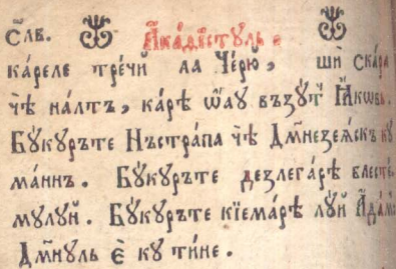 Сл҃в. А҆ка́ѳїстꙋль.
ка́реле тре́чй ла Че́рю, шѝ ска́ра
чѣ на́лтъ, ка́рѣ ѡ҆ау въꙁꙋ́т І҆а́ковь.
Бꙋ́кꙋръте Нъстра́па чѣ Дм҃неꙁеѧ́скъ кꙋ
ма́ннъ. Бꙋ́кꙋръте деꙁлега́рѣ бле́сте
мꙋлꙋ́й. Бꙋ́кꙋръте кїема́рѣ лꙋ́й А҆да́м
Дм҃нꙋль є҆ кꙋ ти́не.